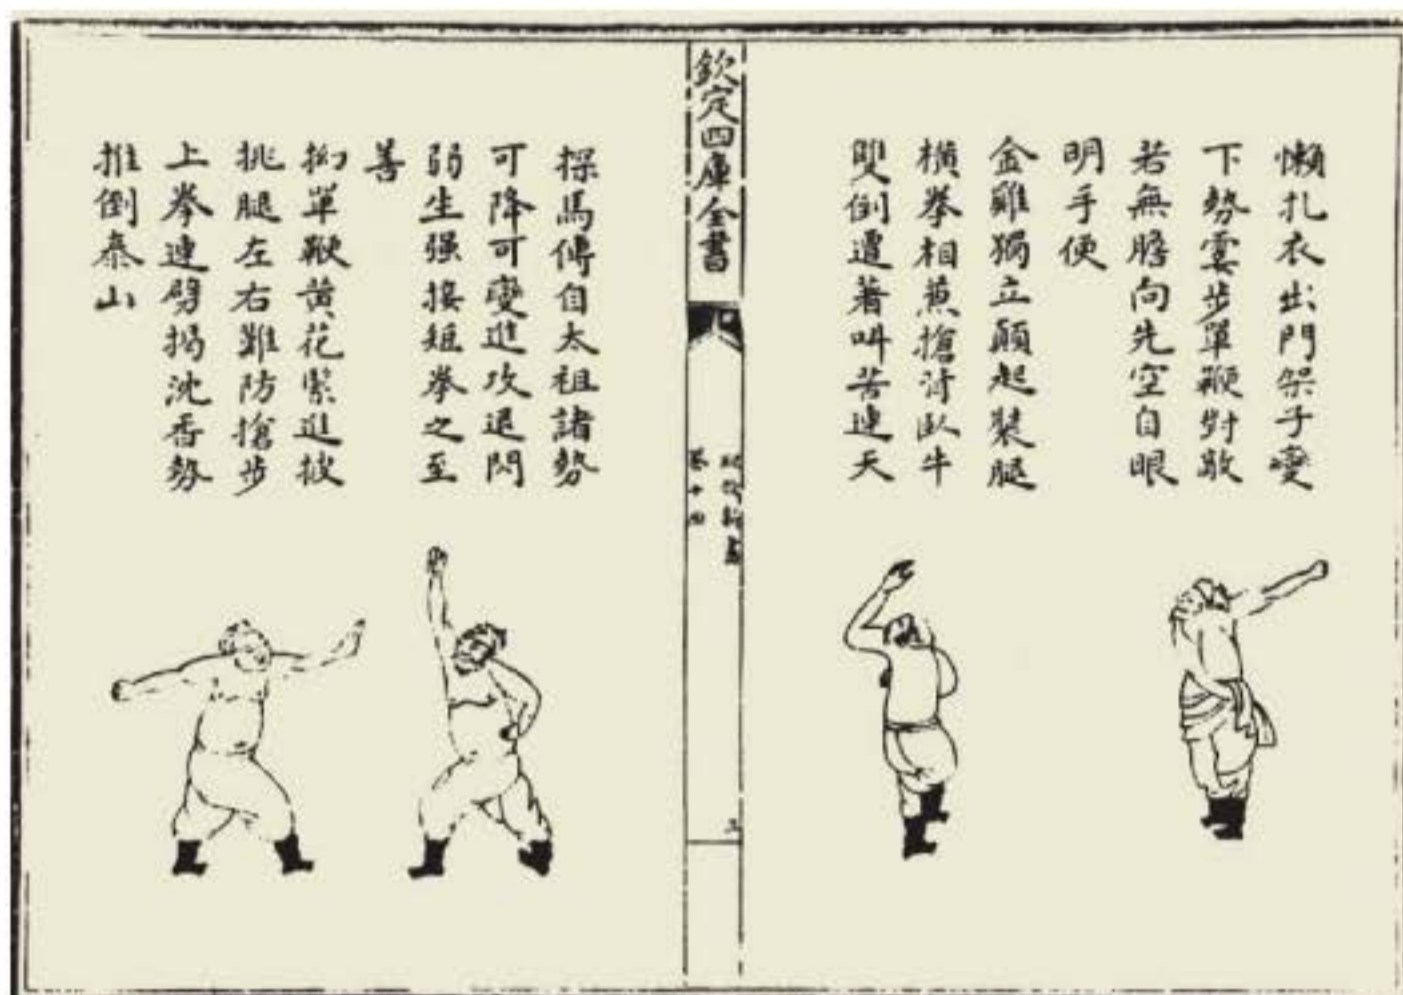 懶扎衣出門架子變
下勢霎步單鞭對敵
若無膽向先空自眼
明手便
金雞獨立顛起裝腿
橫拳相蕉搶背臥牛
雙倒遭著叫苦連天
欽定四庫全書
紀效新書
卷十四
三
探馬傳自太祖諸勢
可降可變進攻退閃
弱生强接短拳之至
善
拗單鞭黄花緊進披
挑腿左右難防搶步
上拳連劈揭沈香勢
推倒泰山